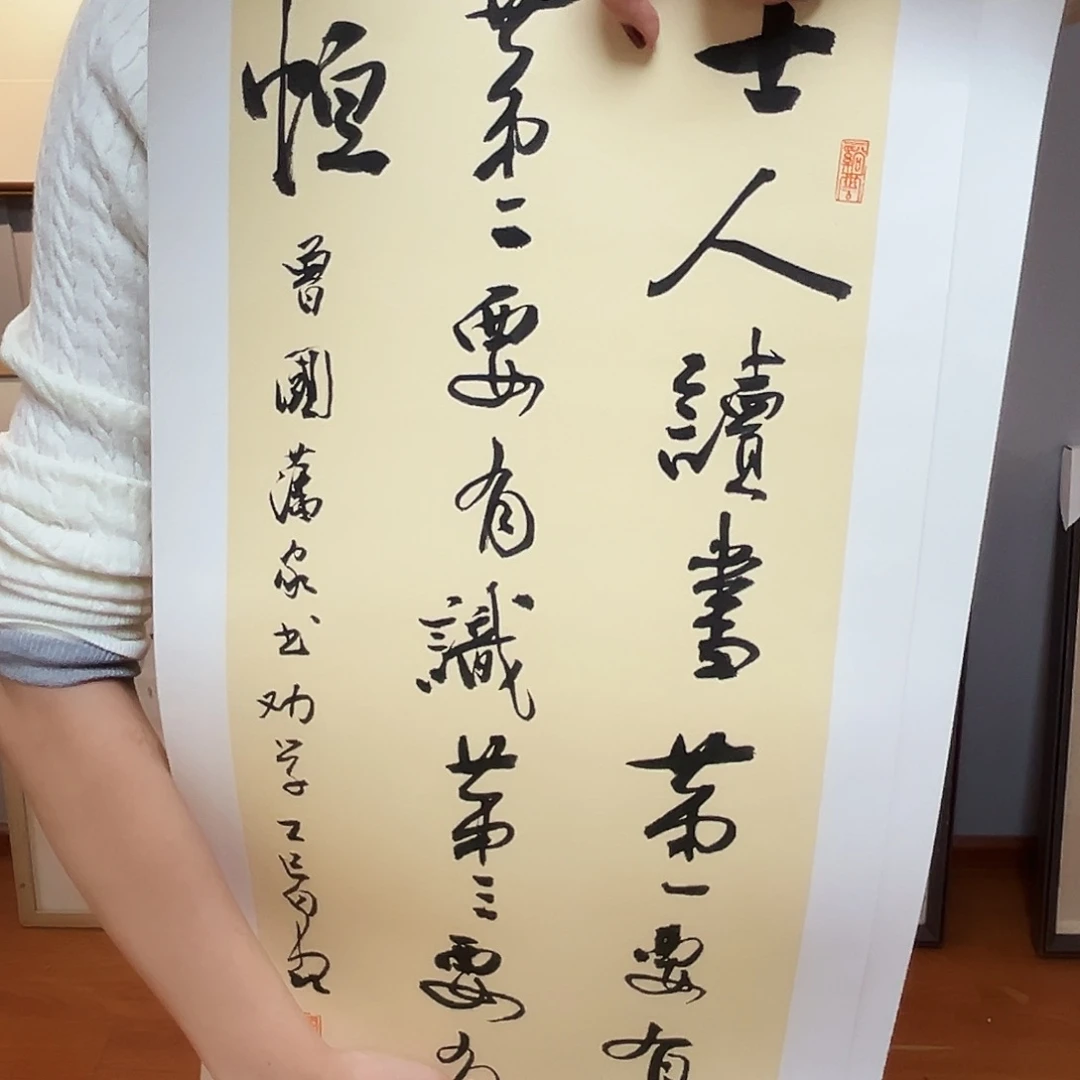 士人讀書第一要有
第二要有識第三要有
恒曾國藩家书劝学